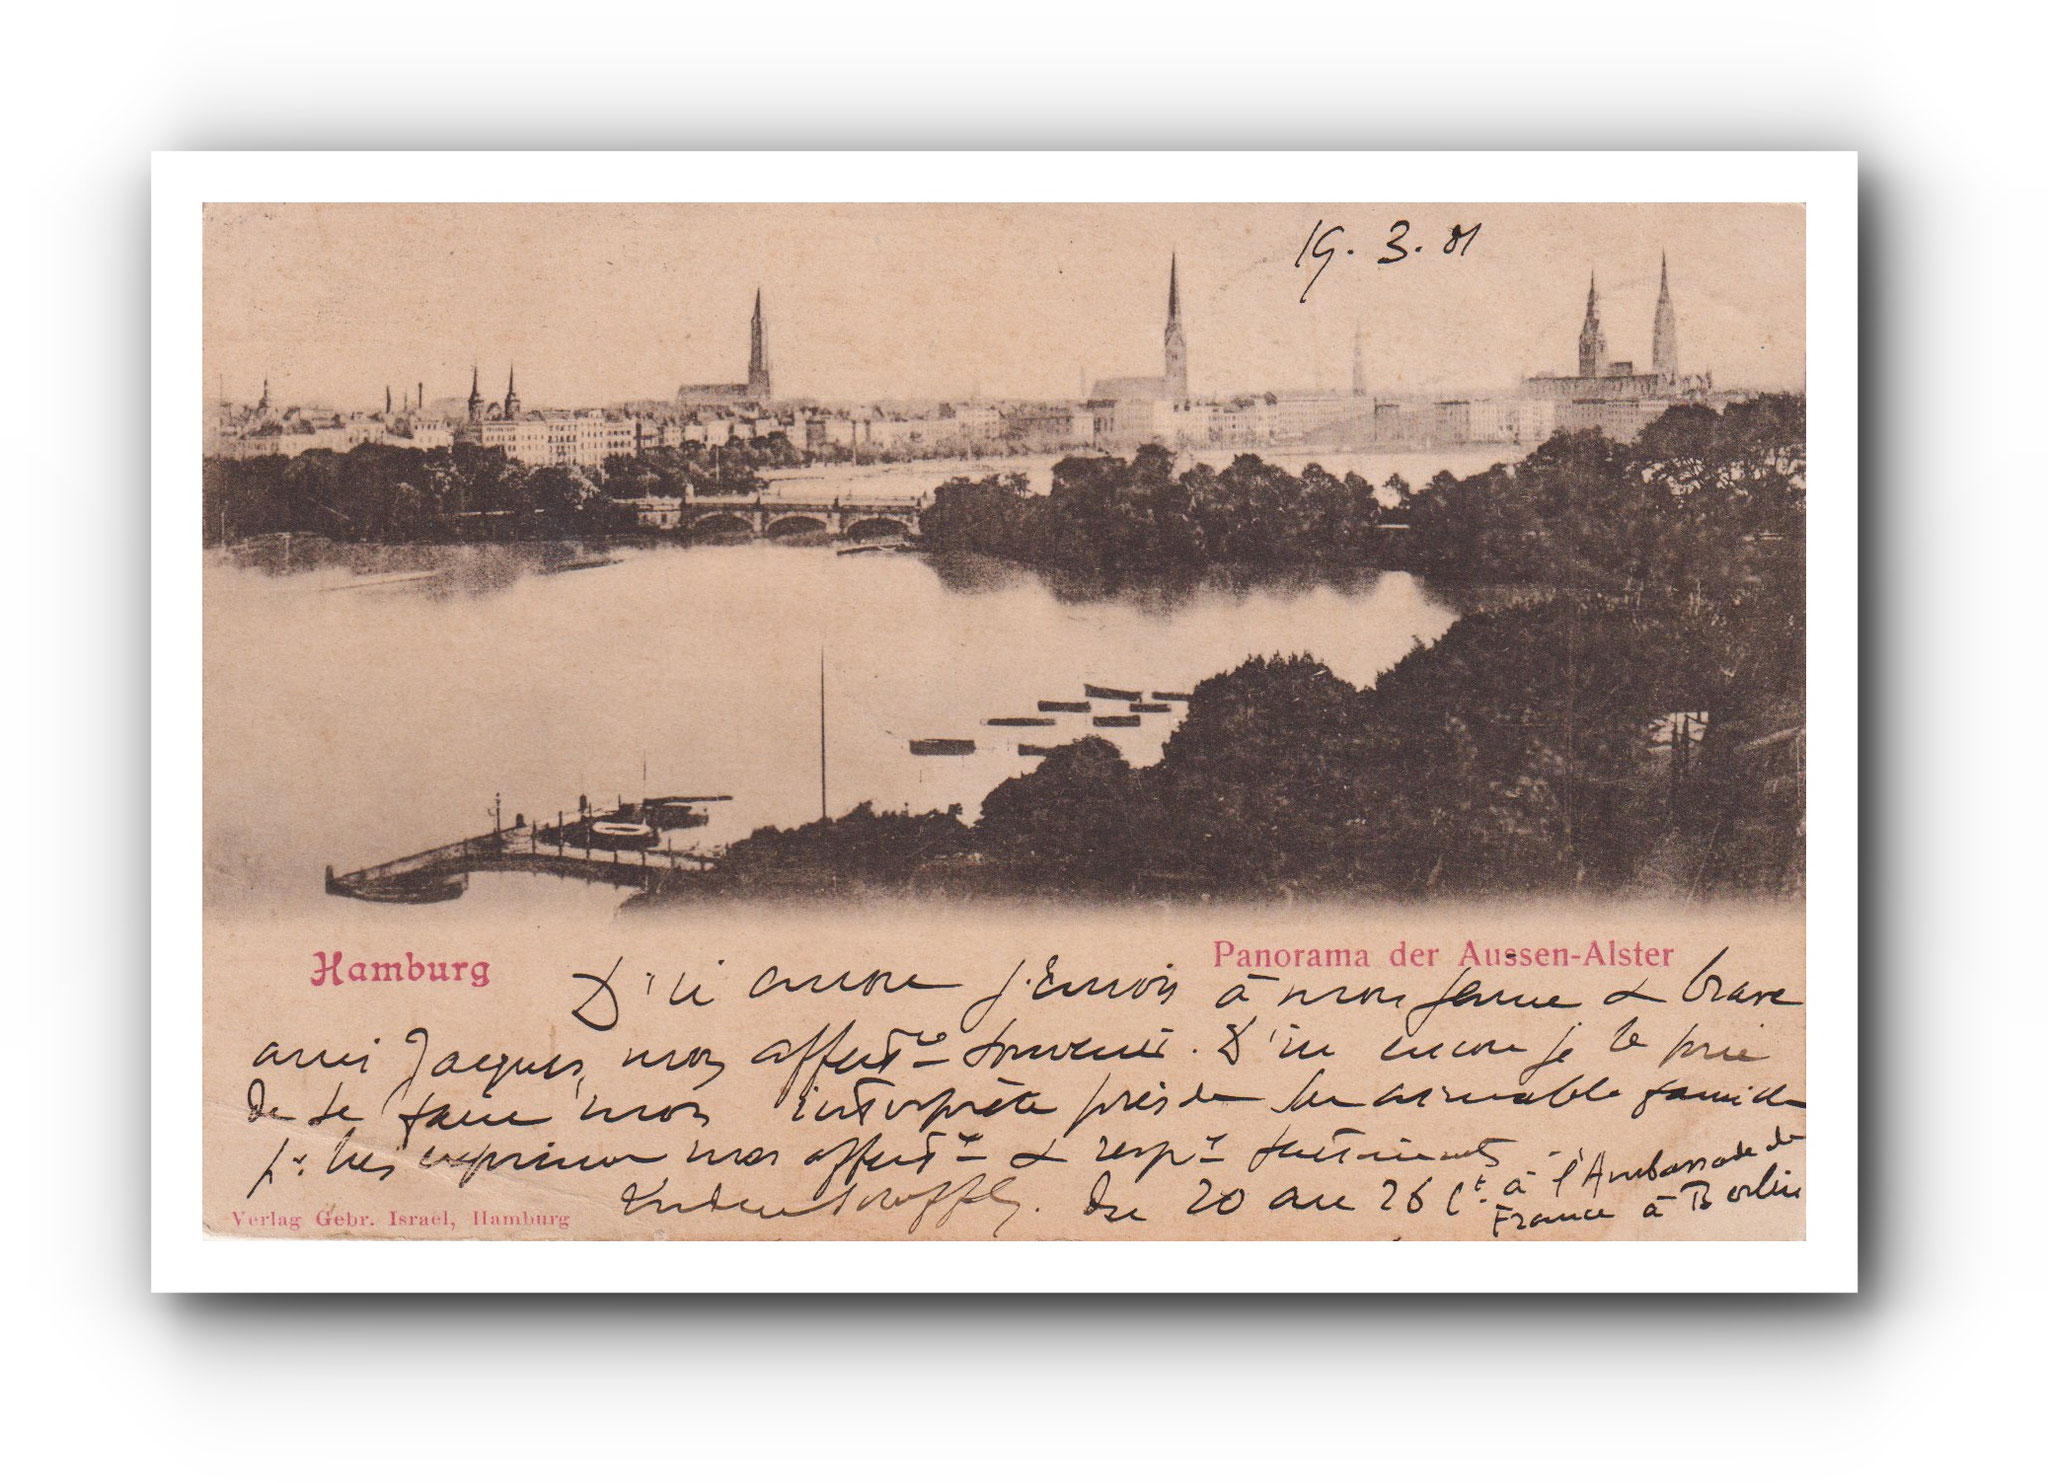 19. 3. 01
Hamburg
Panorama der Aussen-Alster
D'ici encore j'envoie à mon jeune & brave
ami Jacques, mon affectx souvenir. D'ici encore je le prie
de se faire mon interprète près de son aimable famille
pr lui exprimer mes affectx & respx sentiments.
Du 20 au 26 Ct à l'Ambassade de
France à Berlin
Verlag Gebr. Israel, Hamburg